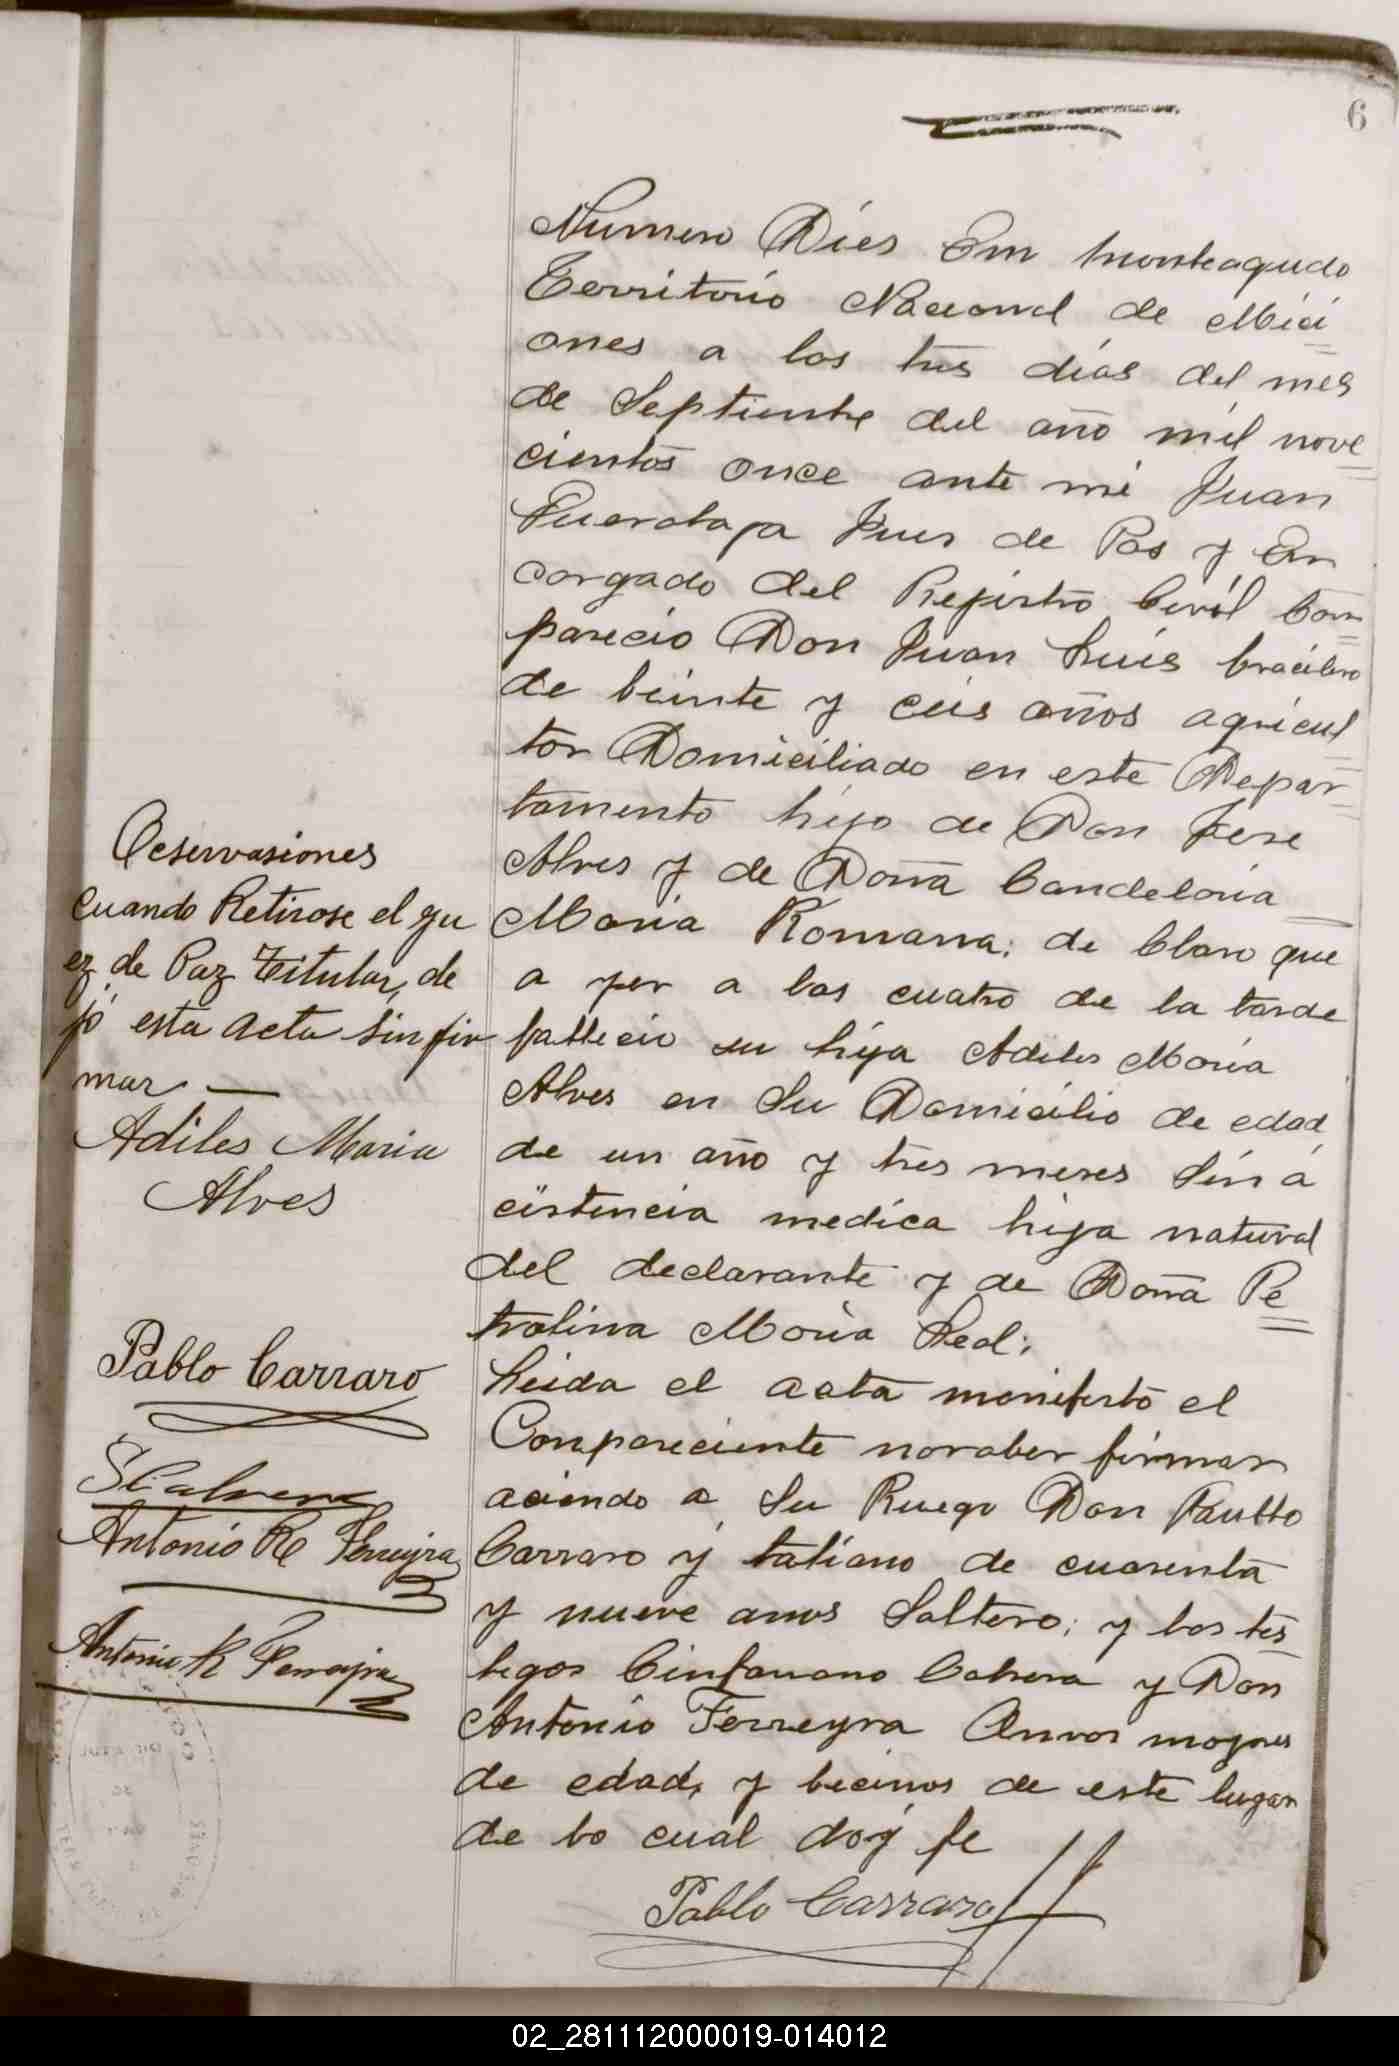 6
Numero Dies En Monteagudo
Territorio Nacional de Mici
ones a los tres días del mes
de Septiembre del año mil nove
cientos once ante mi Juan
Juez de Pas y En
cargado del Rejistro Cevil Com
parecio Don Juan Luis bracilero
de beinte y ceis años agricul
tor Domiciliado en este Depar
tamento hijo de Don Jose
Alves y de Doña Candeloria
Maria Romana; de Claro que
a yer a las cuatro de la tarde
fallecio su hija Adiles Maria
Alves en Su Domicilio de edad
de un año y tres meses Sin á
cistencia medica hija natural
del declarante y de Doña Pe
trolina Maria Leal;
Leida el acta monifesto el
Conpareciente no saber firmar
aciendo a Su Ruego Don Fausto
Carraro y taliano de cuarenta
y nueve anos Soltero; y los tes
tegos Cabrera y Don
Antonio Ferreyra Anvos mayores
de edad, y becinos de este lugar
de lo cual doy fe
Pablo Carraro
Ocservasiones
cuando Retirose el Ju
ez de Paz Titular, de
jó esta acta Sin fir
mar
Adiles Maria
Alves
Pablo Carraro
Antonio R Ferreyra
Antonio R Ferreyra
02_281112000019-014012